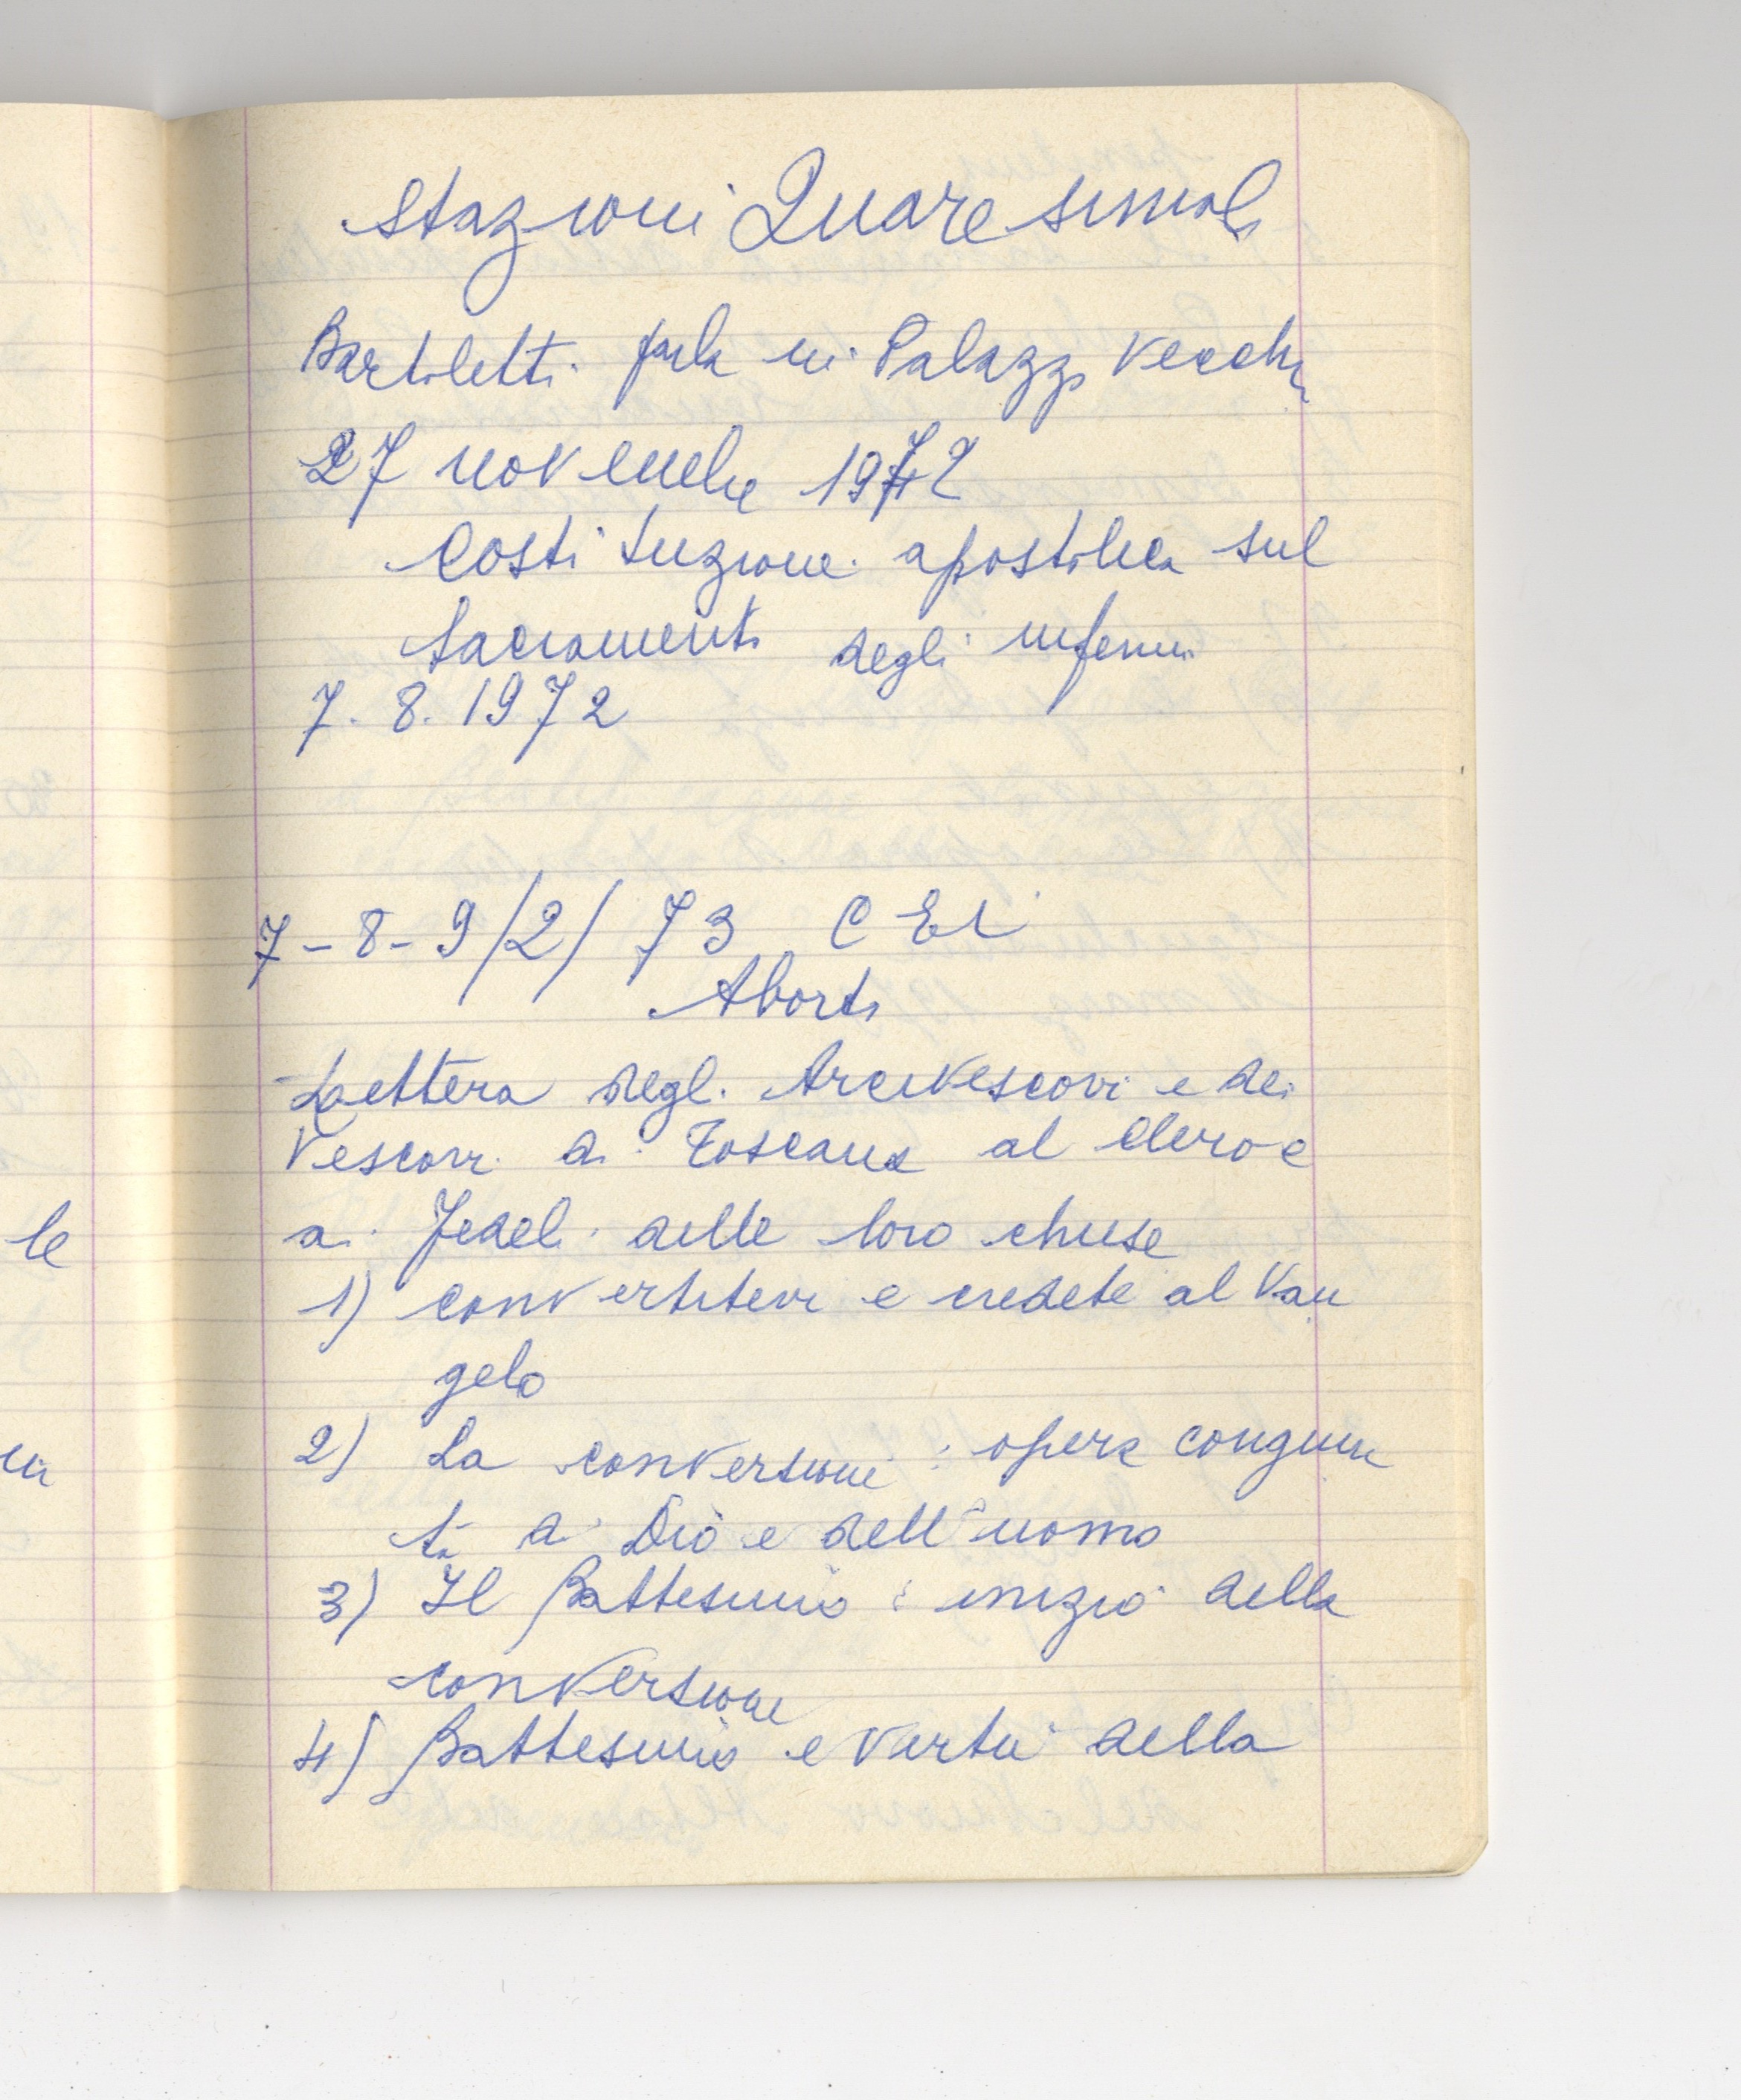 Stazioni Quaresimali
Bartoletti parla in Palazzo Vecchio
27 novembre 1972
Costituzione apostolica sul
Sacramento degli infermi
7. 8. 1972
7-8-9/2/73 CEI
Aborto
Lettera degli Arcivescovi e dei
Vescovi di Toscana al clero e
ai fedeli delle loro chiese
1) convertitevi e credete al Van
gelo
2) La conversione: opera congiun
ta di Dio e dell'uomo
3) Il Battesimo: inizio della
conversione
4) Battesimo e virtù della
le